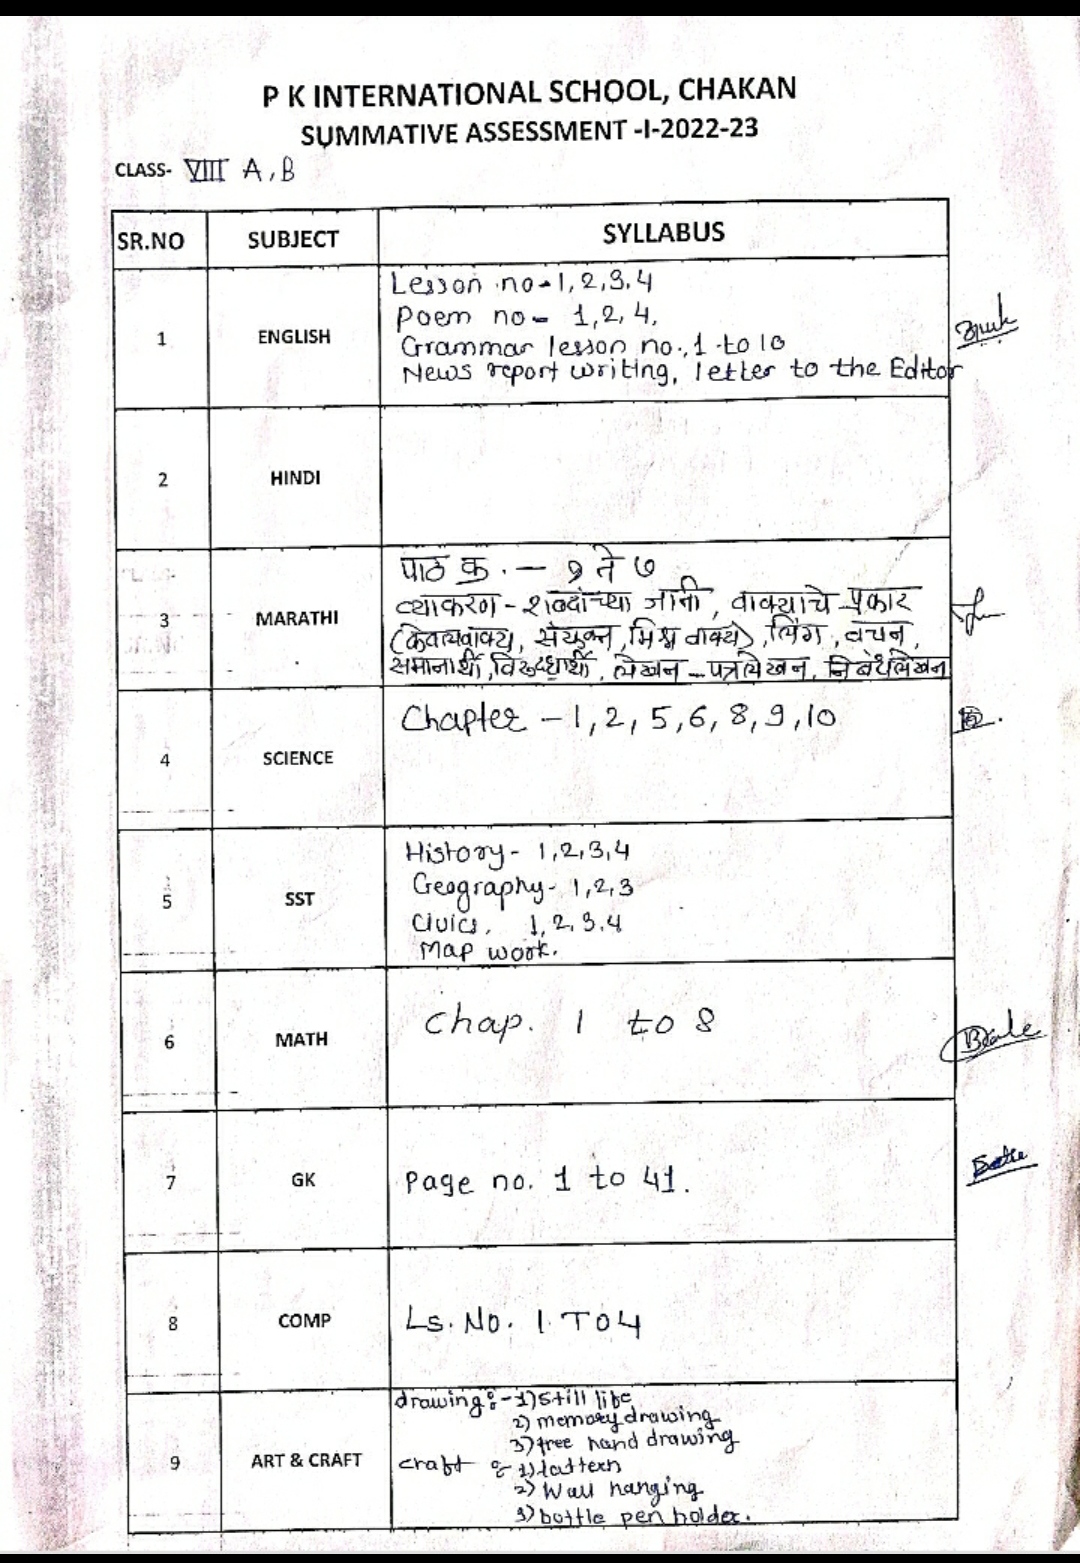 P K INTERNATIONAL SCHOOL, CHAKAN
SUMMATIVE ASSESSMENT -I-2022-23
CLASS- VIII A, B
SR.NO SUBJECT SYLLABUS
1 ENGLISH
Lesson no-1,2,3,4
Poem no- 1,2,4,
Grammar lesson no., 1 to 10
News report writing, letter to the Editor
2 HINDI
3 MARATHI
पाठ क्र. - १ ते ७
व्याकरण - शब्दांच्या जाती, वाक्याचे प्रकार
(केवलवाक्य, संयुक्त, मिश्र वाक्य), लिंग, वचन,
समानार्थी, विरुद्धार्थी, लेखन - पत्रलेखन, निबंधलेखन
4 SCIENCE
Chapter - 1, 2, 5, 6, 8, 9, 10
5 SST
History- 1,2,3,4
Geography- 1,2,3
Civics, 1,2,3,4
Map work.
6 MATH
Chap. 1 to 8
7 GK
Page no. 1 to 41.
8 COMP
Ls. No. 1 TO 4
9 ART & CRAFT
drawing:- 1) Still life
2) memory drawing
3) free hand drawing
craft : 1)
2) Wall hanging
3) bottle pen holder.